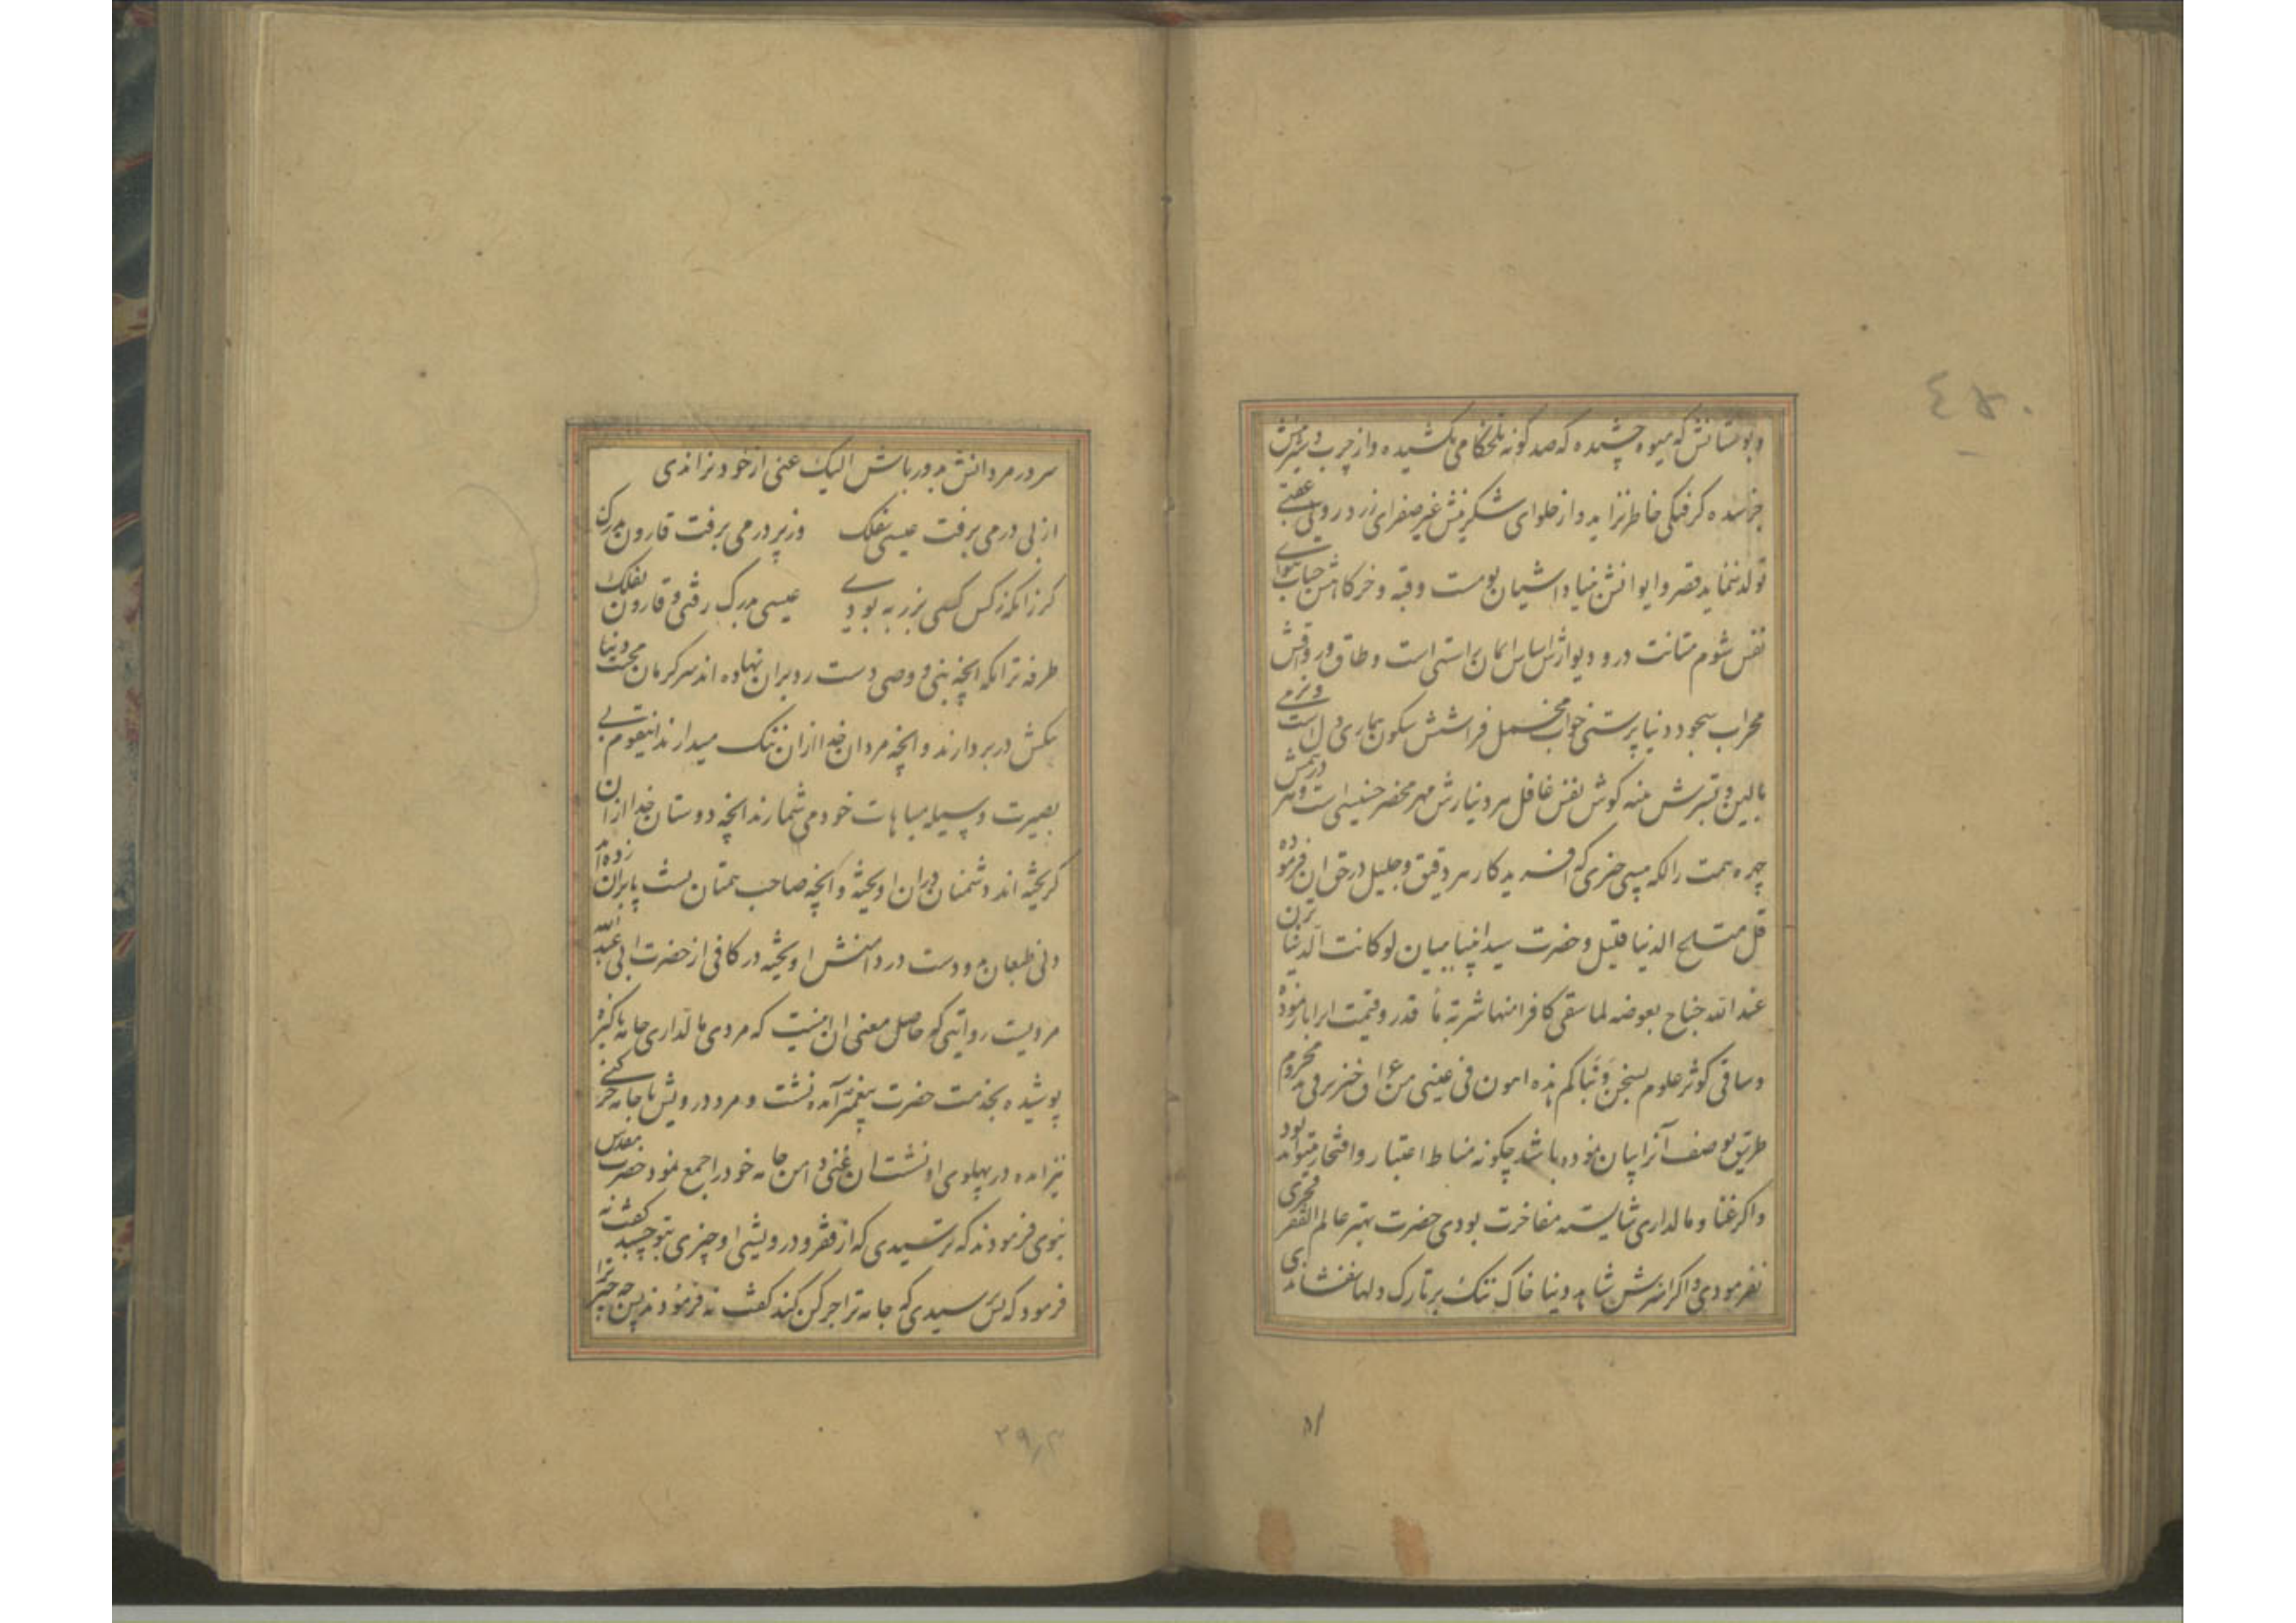 وبوستانش که میوه چشیده که صد کونه تلخکامی نکشیده واز چرب و شیرینش
نرسیده کرفتکی خاطر نزاید و از حلوای شکرینش غیر صفرای زرد رویی عقبی
تولد ننماید قصر و ایوانش بنیاد اشیان بومست وقبه وخرکاهش حباب
نفس شوم متانت در و دیوارش اساس ایمان براستی است و طاق ورواقش
محراب سجود دنیا پرستی خواب مخمل فراشش سکون بیماری دل است
بالین و بسترش پنبه کوش نفس غافل هر دینارش مهر محضر خسیسی است و هر درهمش
چهره همت را لکه پیسی چیزی که افریدکار هر دقیق وجلیل در حق ان فرموده
قل متاع الدنیا قلیل وحضرت سید انبیا ببیان لو کانت الدنیا تزن
عند الله جناح بعوضه لما سقی کافرا منها شربة ماء قدر وقیمت انرا باز نموده
وساقی کوثر علوم بسخن ودنیاکم هذه اهون فی عینی من عراق خنزیر فی ید مجذوم
طریق بوصف آنرا بیان نموده باشد چکونه مناط اعتبار وافتخار میتواند بود
واکر غنا ومالداری شایسته مفاخرت بودی حضرت بهتر عالم الفقر فخری
نفرمودی و اکر امیزش شاهد دنیا خاک ننک بر تارک دلها نفشاندی
۴۵۰
سر در مردانش بدور باش الیک عنی از خود نراندی
از بی درمی برفت عیسی بفلک وز پر درمی برفت قارون بدرک
کر زانکه زکس کسی بزر به بودی عیسی بدرک رفتی و قارون بفلک
طرفه تر انکه انچه نبی و وصی دست رد بران نهاده اند سرکرمان محبت دنیا
تنکش در بر دارند وانچه مردان خدا ازان ننک میدارند اینقوم بی
بصیرت وسیله مباهات خود می شمارند انچه دوستان خدا ازان
کریخته اند دشمنان دران اویخته وانچه صاحب همتان پشت پا بران زده اند
دنی طبعان دو دست در دامنش اویخته در کافی از حضرت ابی عبد الله
مرویست روایتی که حاصل معنی ان اینست که مردی مالداری جامه پاکیزه
پوشیده بخدمت حضرت پیغمبر آمده نشست و مرد درویش با جامه چرکنی
نیز امده در پهلوی او نشست ان غنی دامن جامه خود را جمع نمود حضرت مقدس
نبوی فرمودند که ترسیدی که از فقر و درویشی او چیزی بتو چسبد کفت نه
فرمود که ترسیدی که جامه ترا چرکن کند کفت نه فرمودند پس چه چیز ترا
۲۹٫۳